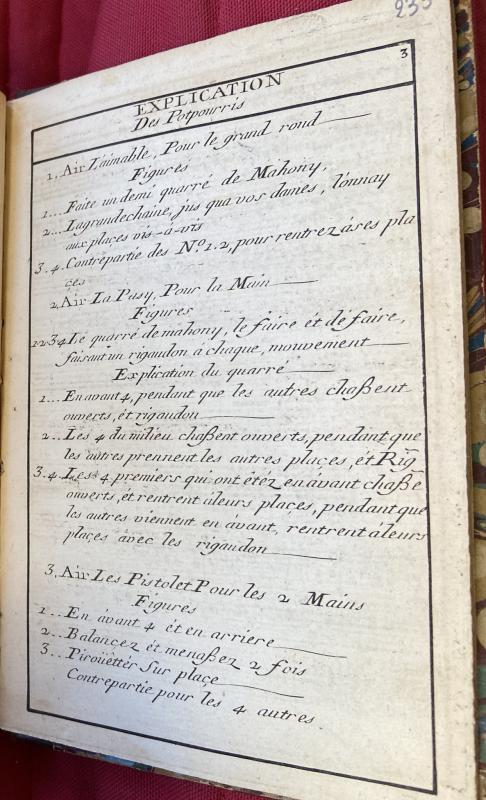 235
3
EXPLICATION
Des Potpourris
1, Air L'aimable, Pour le grand rond
Figures
1... Faite un demi quarré de Mahony,
2... Lagrandechaine, jus qua vos dames, l'onnay
aux places vis-à-vis
3.4. Contrepartie des No. 1.2, pour rentrez áses pla
çes
2, Air La Pusy, Pour la Main
Figures
1234 Le quarré de mahony, le faire ét de faire,
faisant un rigaudon á chaque, mouvement
Explication du quarré
1... En avant 4, pendant que les autres chaßent
ouverts, ét rigaudon
2... Les 4 du milieu chaßent ouverts, pendant que
les autres prennent les autres plaçes, ét Rig
3.4. Les 4 premiers qui ont étéz en avant chaße
ouverts, ét rentrent áleurs plaçes, pendant que
les autres viennent en avant, rentrent áleurs
plaçes àvec les rigaudon
3, Air Les Pistolet Pour les 2 Mains
Figures
1... En àvant 4 ét en arriere
2... Balançez et menaßez 2 fois
3... Piroüétter sur plaçe
Contrepartie pour les 4 autres.